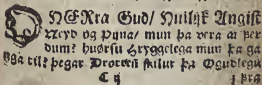 HERra Gud/ Huilijk Angist
Neyd og Pyna/ mun þa vera a þer
dum? huørsu hryggelega mun þa ga
gga til? þegar Drotten skilur þa Ogudlegu
C ij j fra